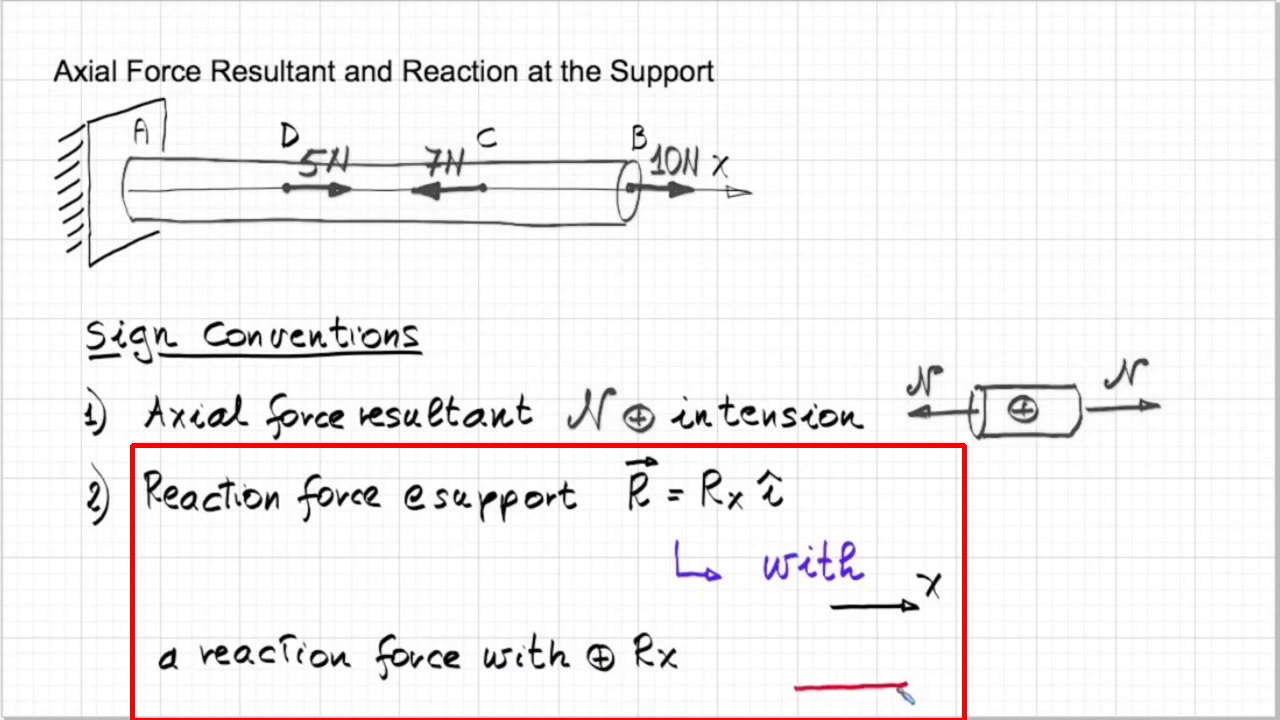 Axial Force Resultant and Reaction at the Support
A D 5N 7N C B 10N x
Sign Conventions
1) Axial force resultant N ⊕ in tension N ⊕ N
2) Reaction force @ support R⃗ = Rx î
↳ with
x
a reaction force with ⊕ Rx